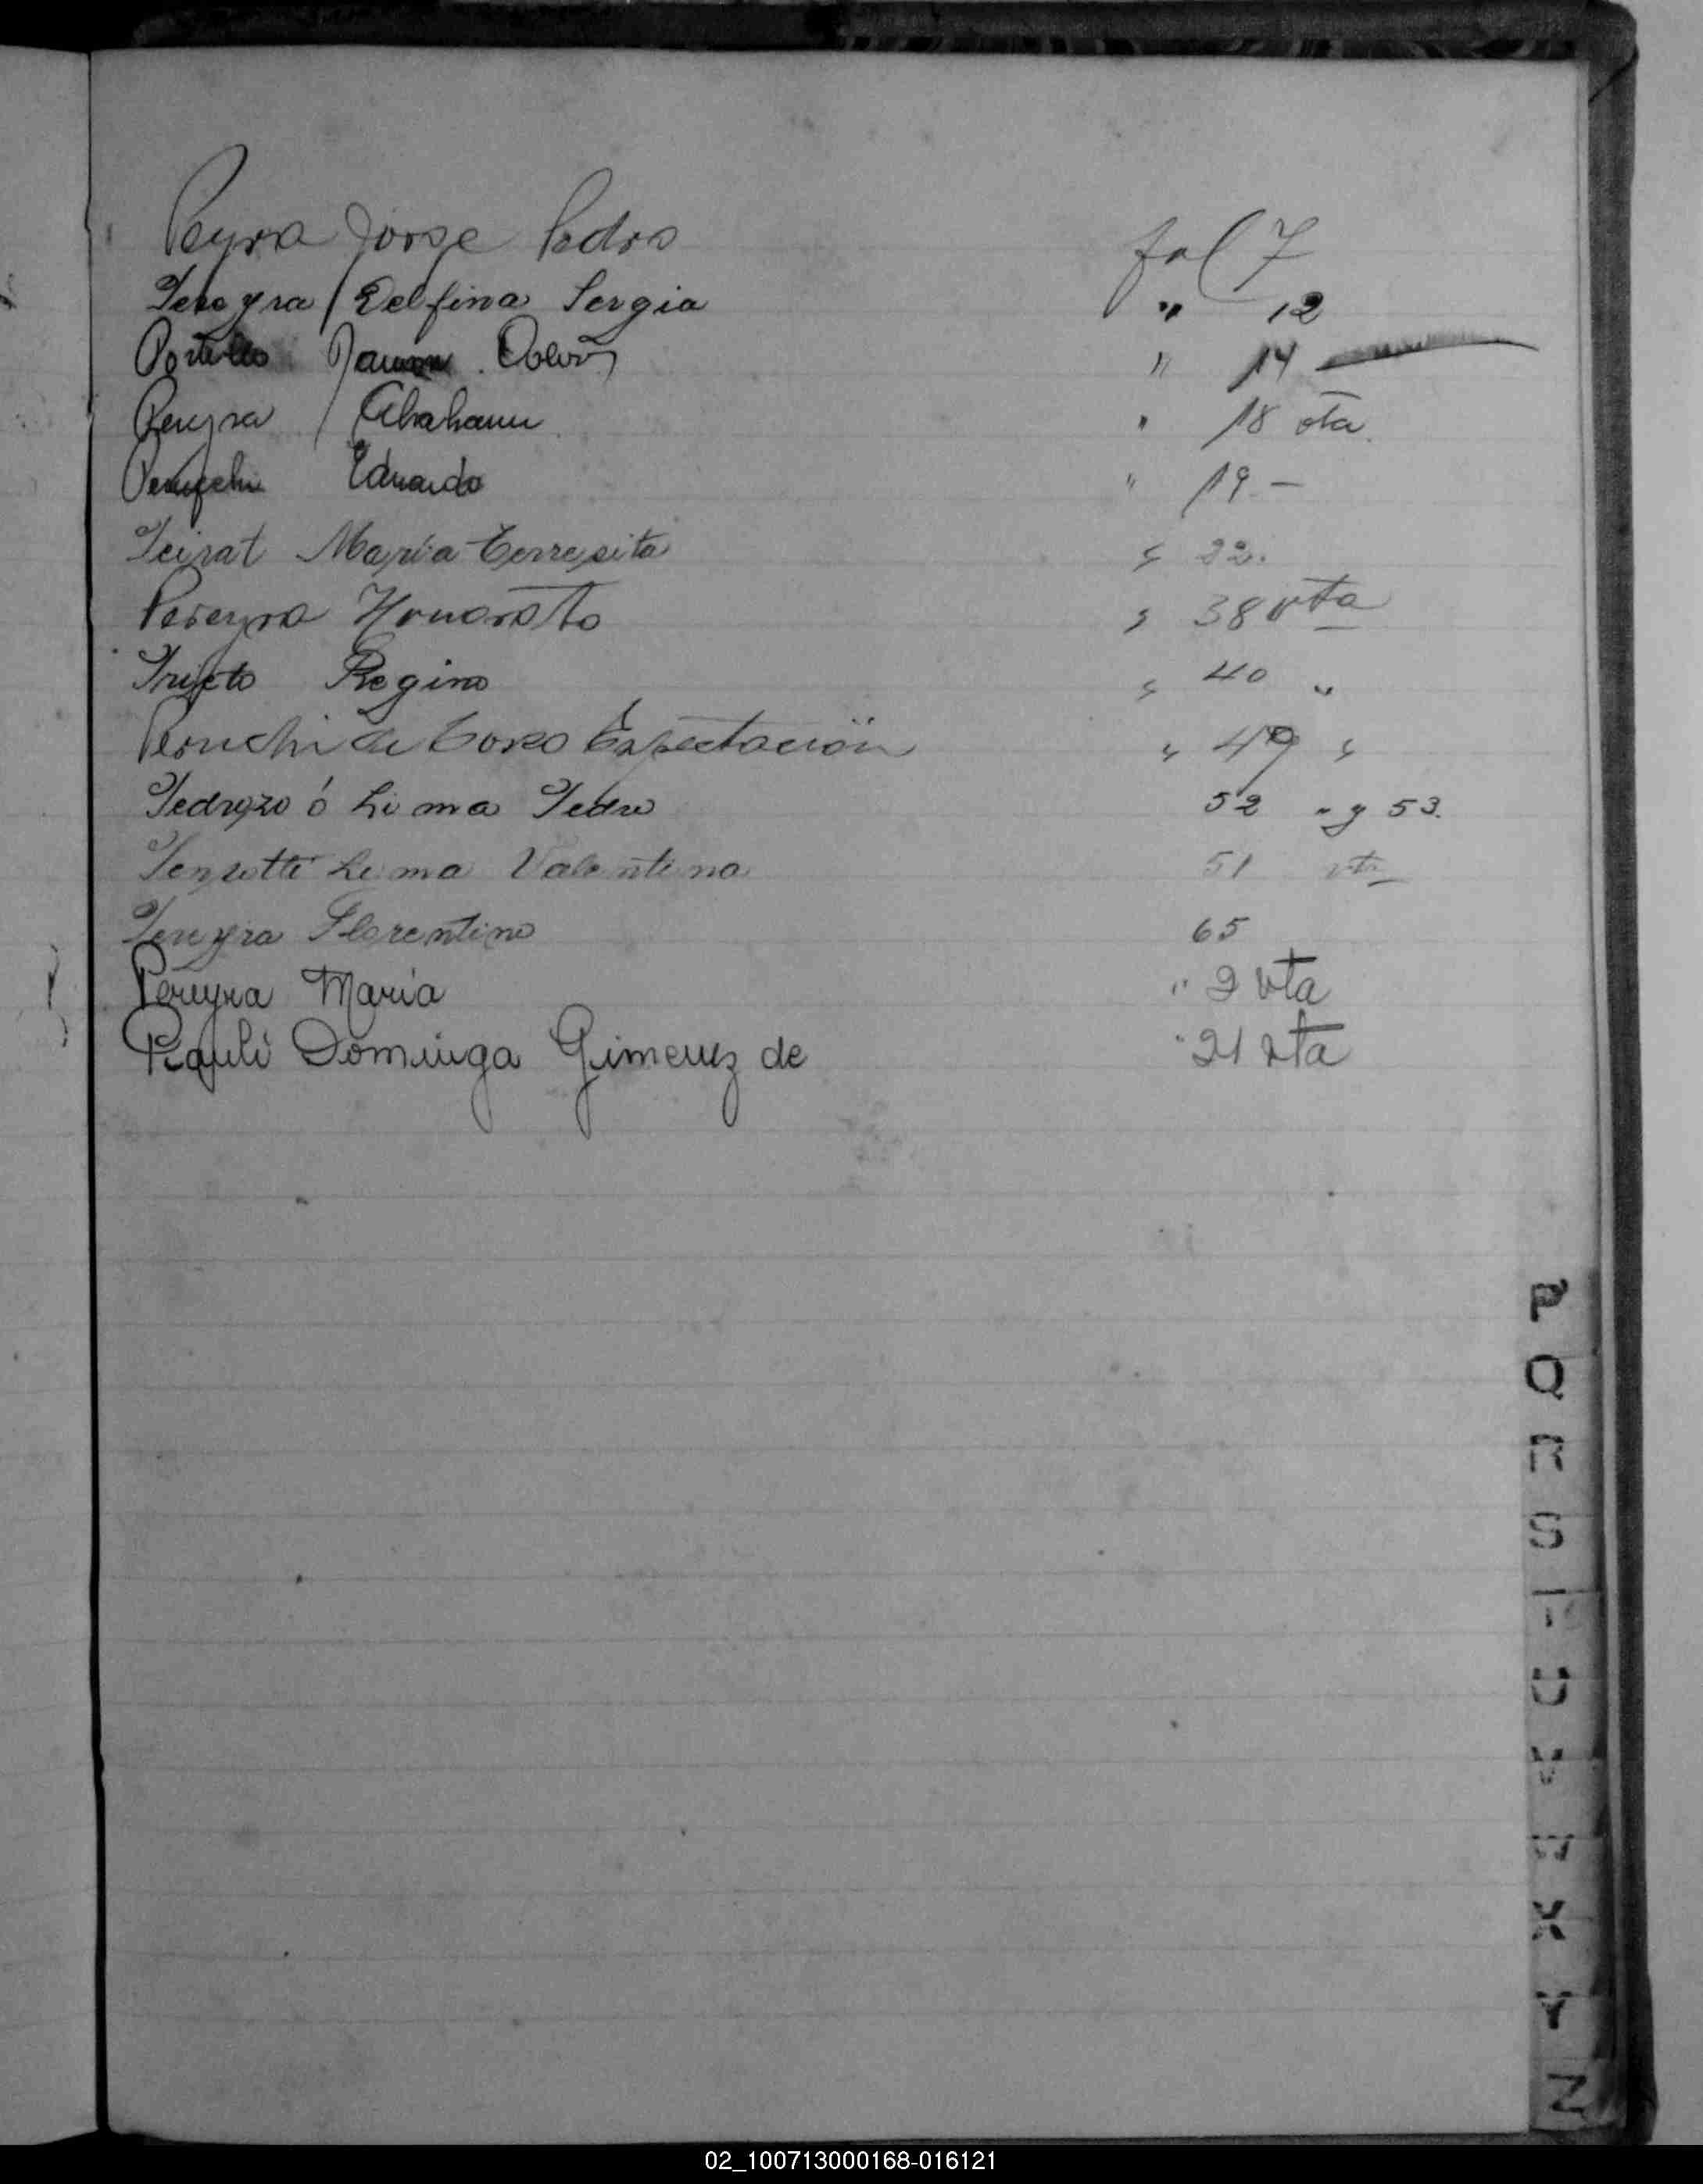 Peyra Jorge Pedro fol 7
Pereyra / Delfina Sergia " 12
Portillo Ramon " 14
Pereyra / Abraham " 18 vta.
Perucchi Eduardo " 19 -
Peirat María Terresita " 22.
Pereyra Honorato " 38 vta
Prieto Regino " 40 "
Peruchi de Toro Espectación " 49 "
Pedrozo ó Lima Pedro 52 " y 53.
Lima Valentina 51 vta
Pereyra Florentino 65
Pereyra Maria " 2 vta
Dominga Gimenez de " 21 vta
P
Q
R
S
T
U
V
W
X
Y
Z
02_100713000168-016121